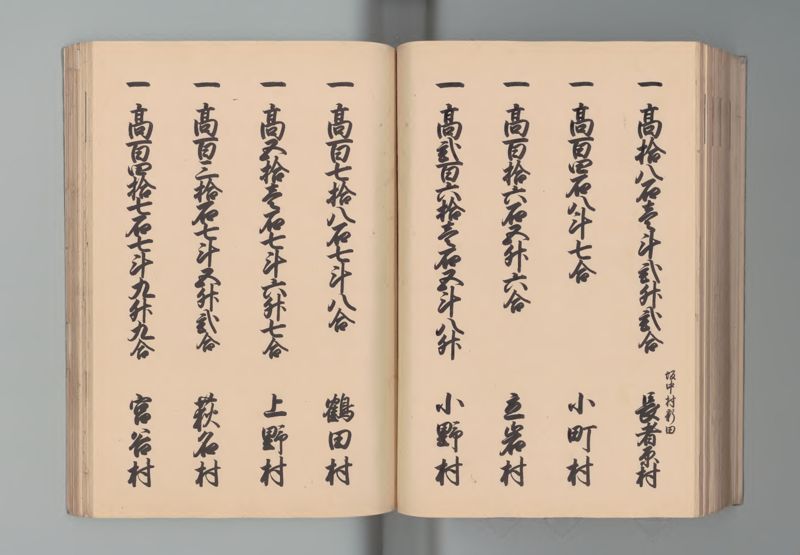 一 高拾八石壱斗弐升弐合
坂中村新田
長者原村
一 高百四石八斗七合 小町村
一 高百拾六石五升六合 立岩村
一 高弐百六拾壱石五斗八升 小野村
一 高百七拾八石七斗八合 鶴田村
一 高五拾壱石七斗六升七合 上野村
一 高百三拾石七斗五升弐合 萩名村
一 高百四拾七石七斗九升九合 宮谷村